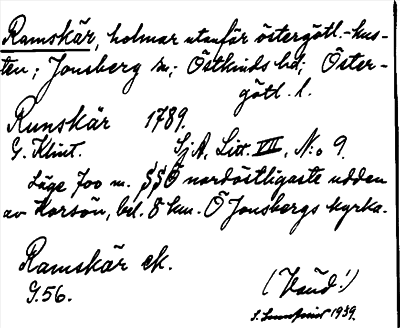 Ramskär, holmar utanför östergötl.-kus-
ten; Jonsberg sn; Östkinds hd; Öster-
götl. l.
Runskär 1789.
G. Klint. SjA, Litt. VII, N:o 9.
Läge 700 m. SSÖ nordöstligaste udden
av Korsön, bel. 8 km. Ö Jonsbergs kyrka.
Ramskär ek.
G.56. (Våud!)
1939.